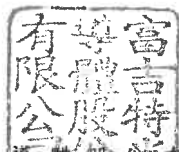 富吉特
導體股
有限公